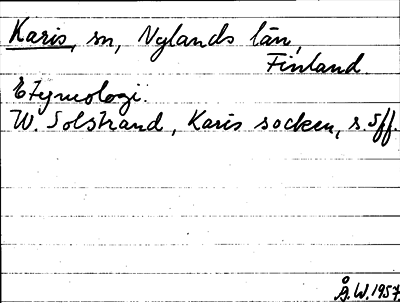 Karis, sn, Nylands län,
Finland.
Etymologi.
W. Solstrand, Karis socken, s. 5ff.
Å.W. 1957